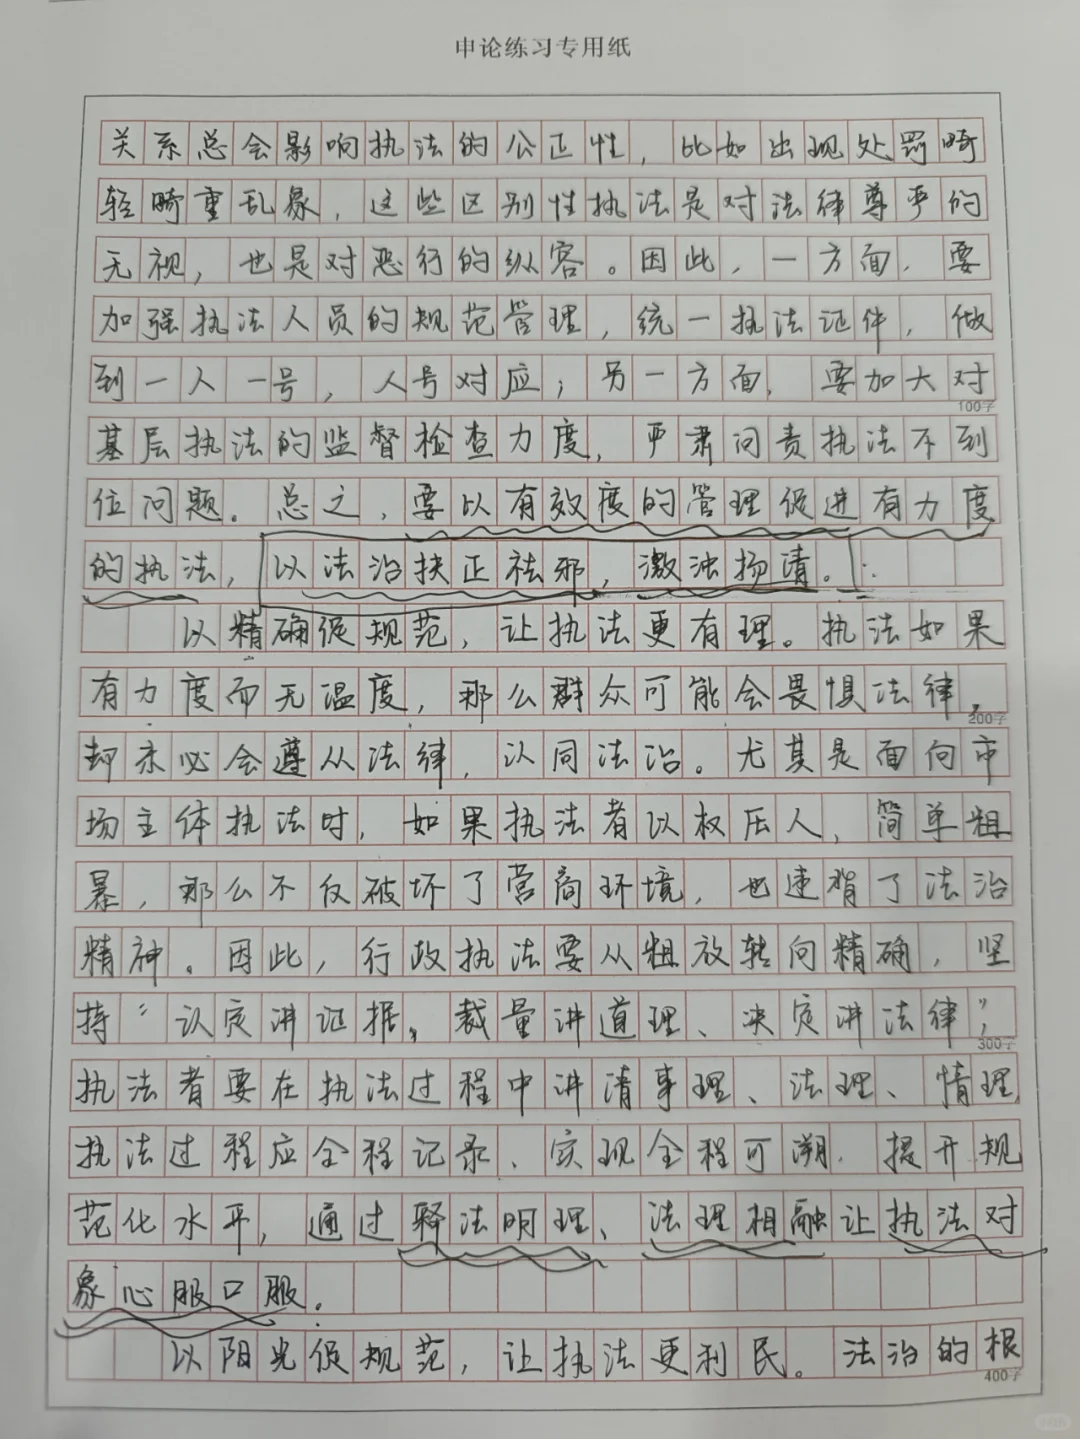 申论练习专用纸
关系总会影响执法的公正性,比如出现处罚畸
轻畸重乱象,这些区别性执法是对法律尊严的
无视,也是对恶行的纵容。因此,一方面,要
加强执法人员的规范管理,统一执法证件,做
到一人一号,人号对应;另一方面,要加大对
100字
基层执法的监督检查力度,严肃问责执法不到
位问题。总之,要以有效度的管理促进有力度
的执法,以法治扶正祛邪,激浊扬清。
以精确促规范,让执法更有理。执法如果
有力度而无温度,那么群众可能会畏惧法律,
200字
却未必会遵从法律,认同法治。尤其是面向市
场主体执法时,如果执法者以权压人,简单粗
暴,那么不仅破坏了营商环境,也违背了法治
精神。因此,行政执法要从粗放转向精确,坚
持“认定讲证据,裁量讲道理、决定讲法律”,
300字
执法者要在执法过程中讲清事理、法理、情理,
执法过程应全程记录、实现全程可溯,提升规
范化水平,通过释法明理、法理相融让执法对
象心服口服。
以阳光促规范,让执法更利民。法治的根
400字